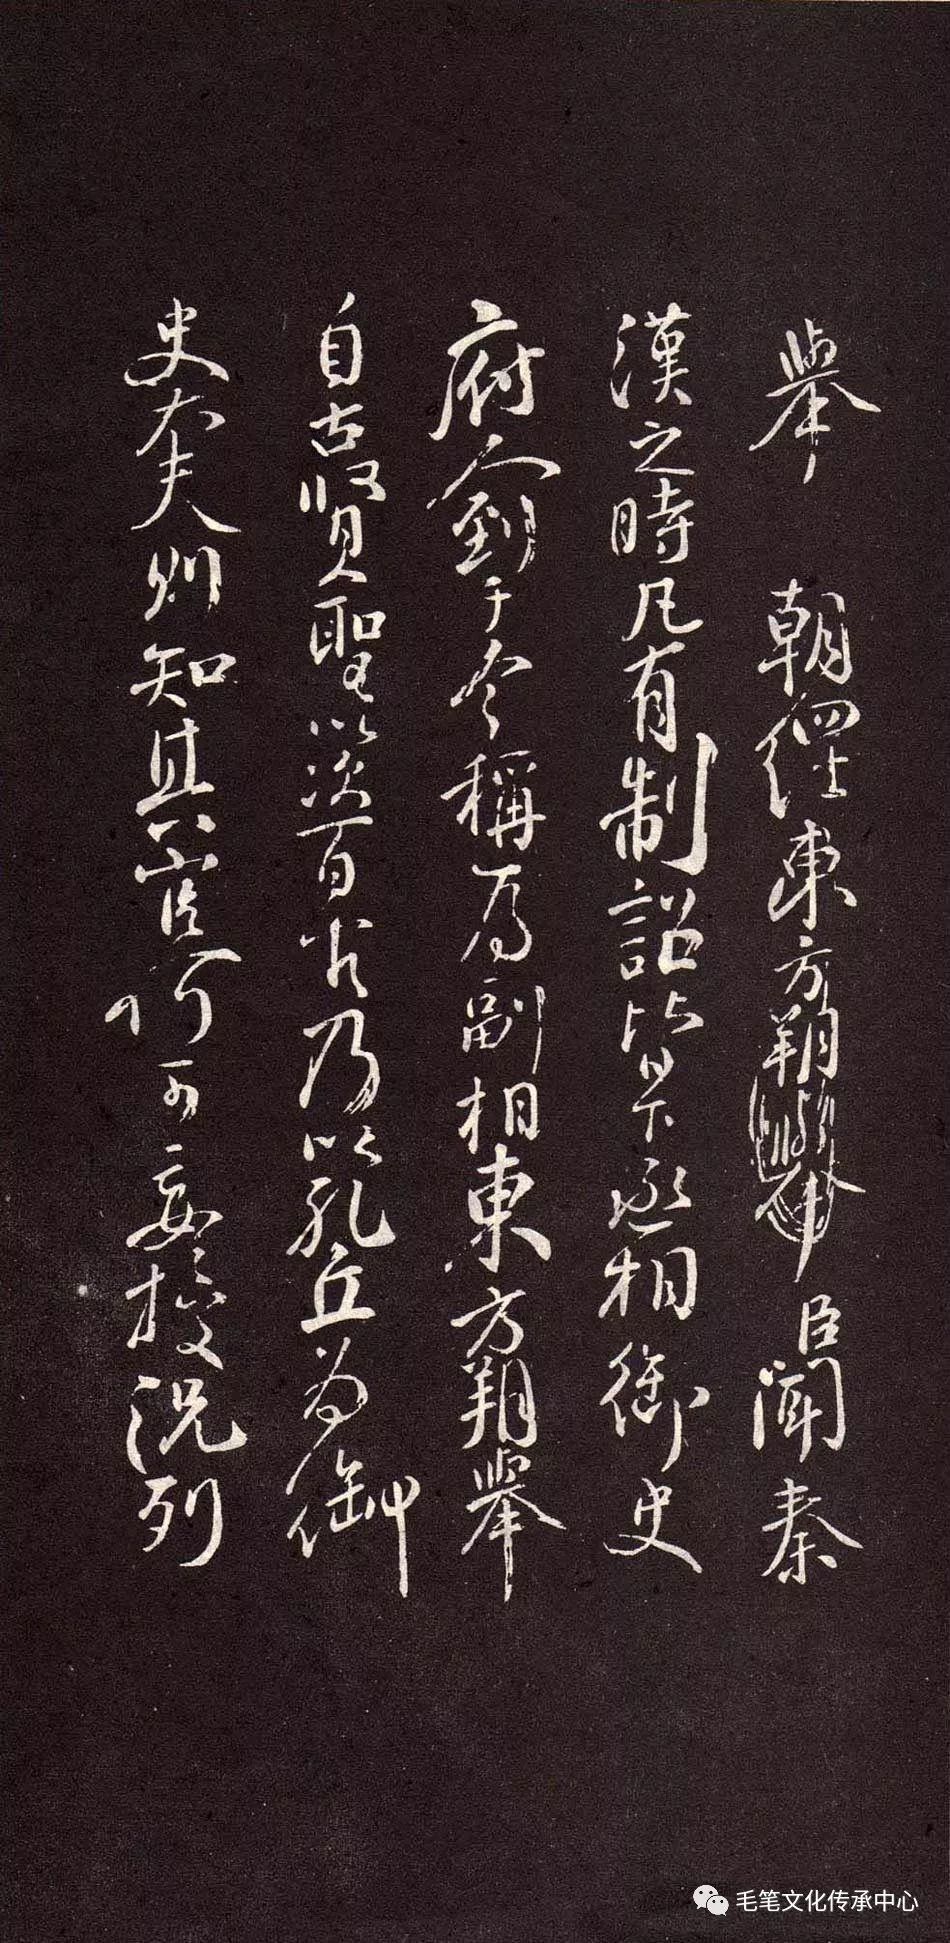 舉 朝經東方朔舉 臣聞秦
漢之時凡有制詔皆下丞相御史
府到于今稱為副相東方朔舉
自古賢聖以次百乃以孔丘為御
史大夫則知其官何可妄授況列
毛笔文化传承中心